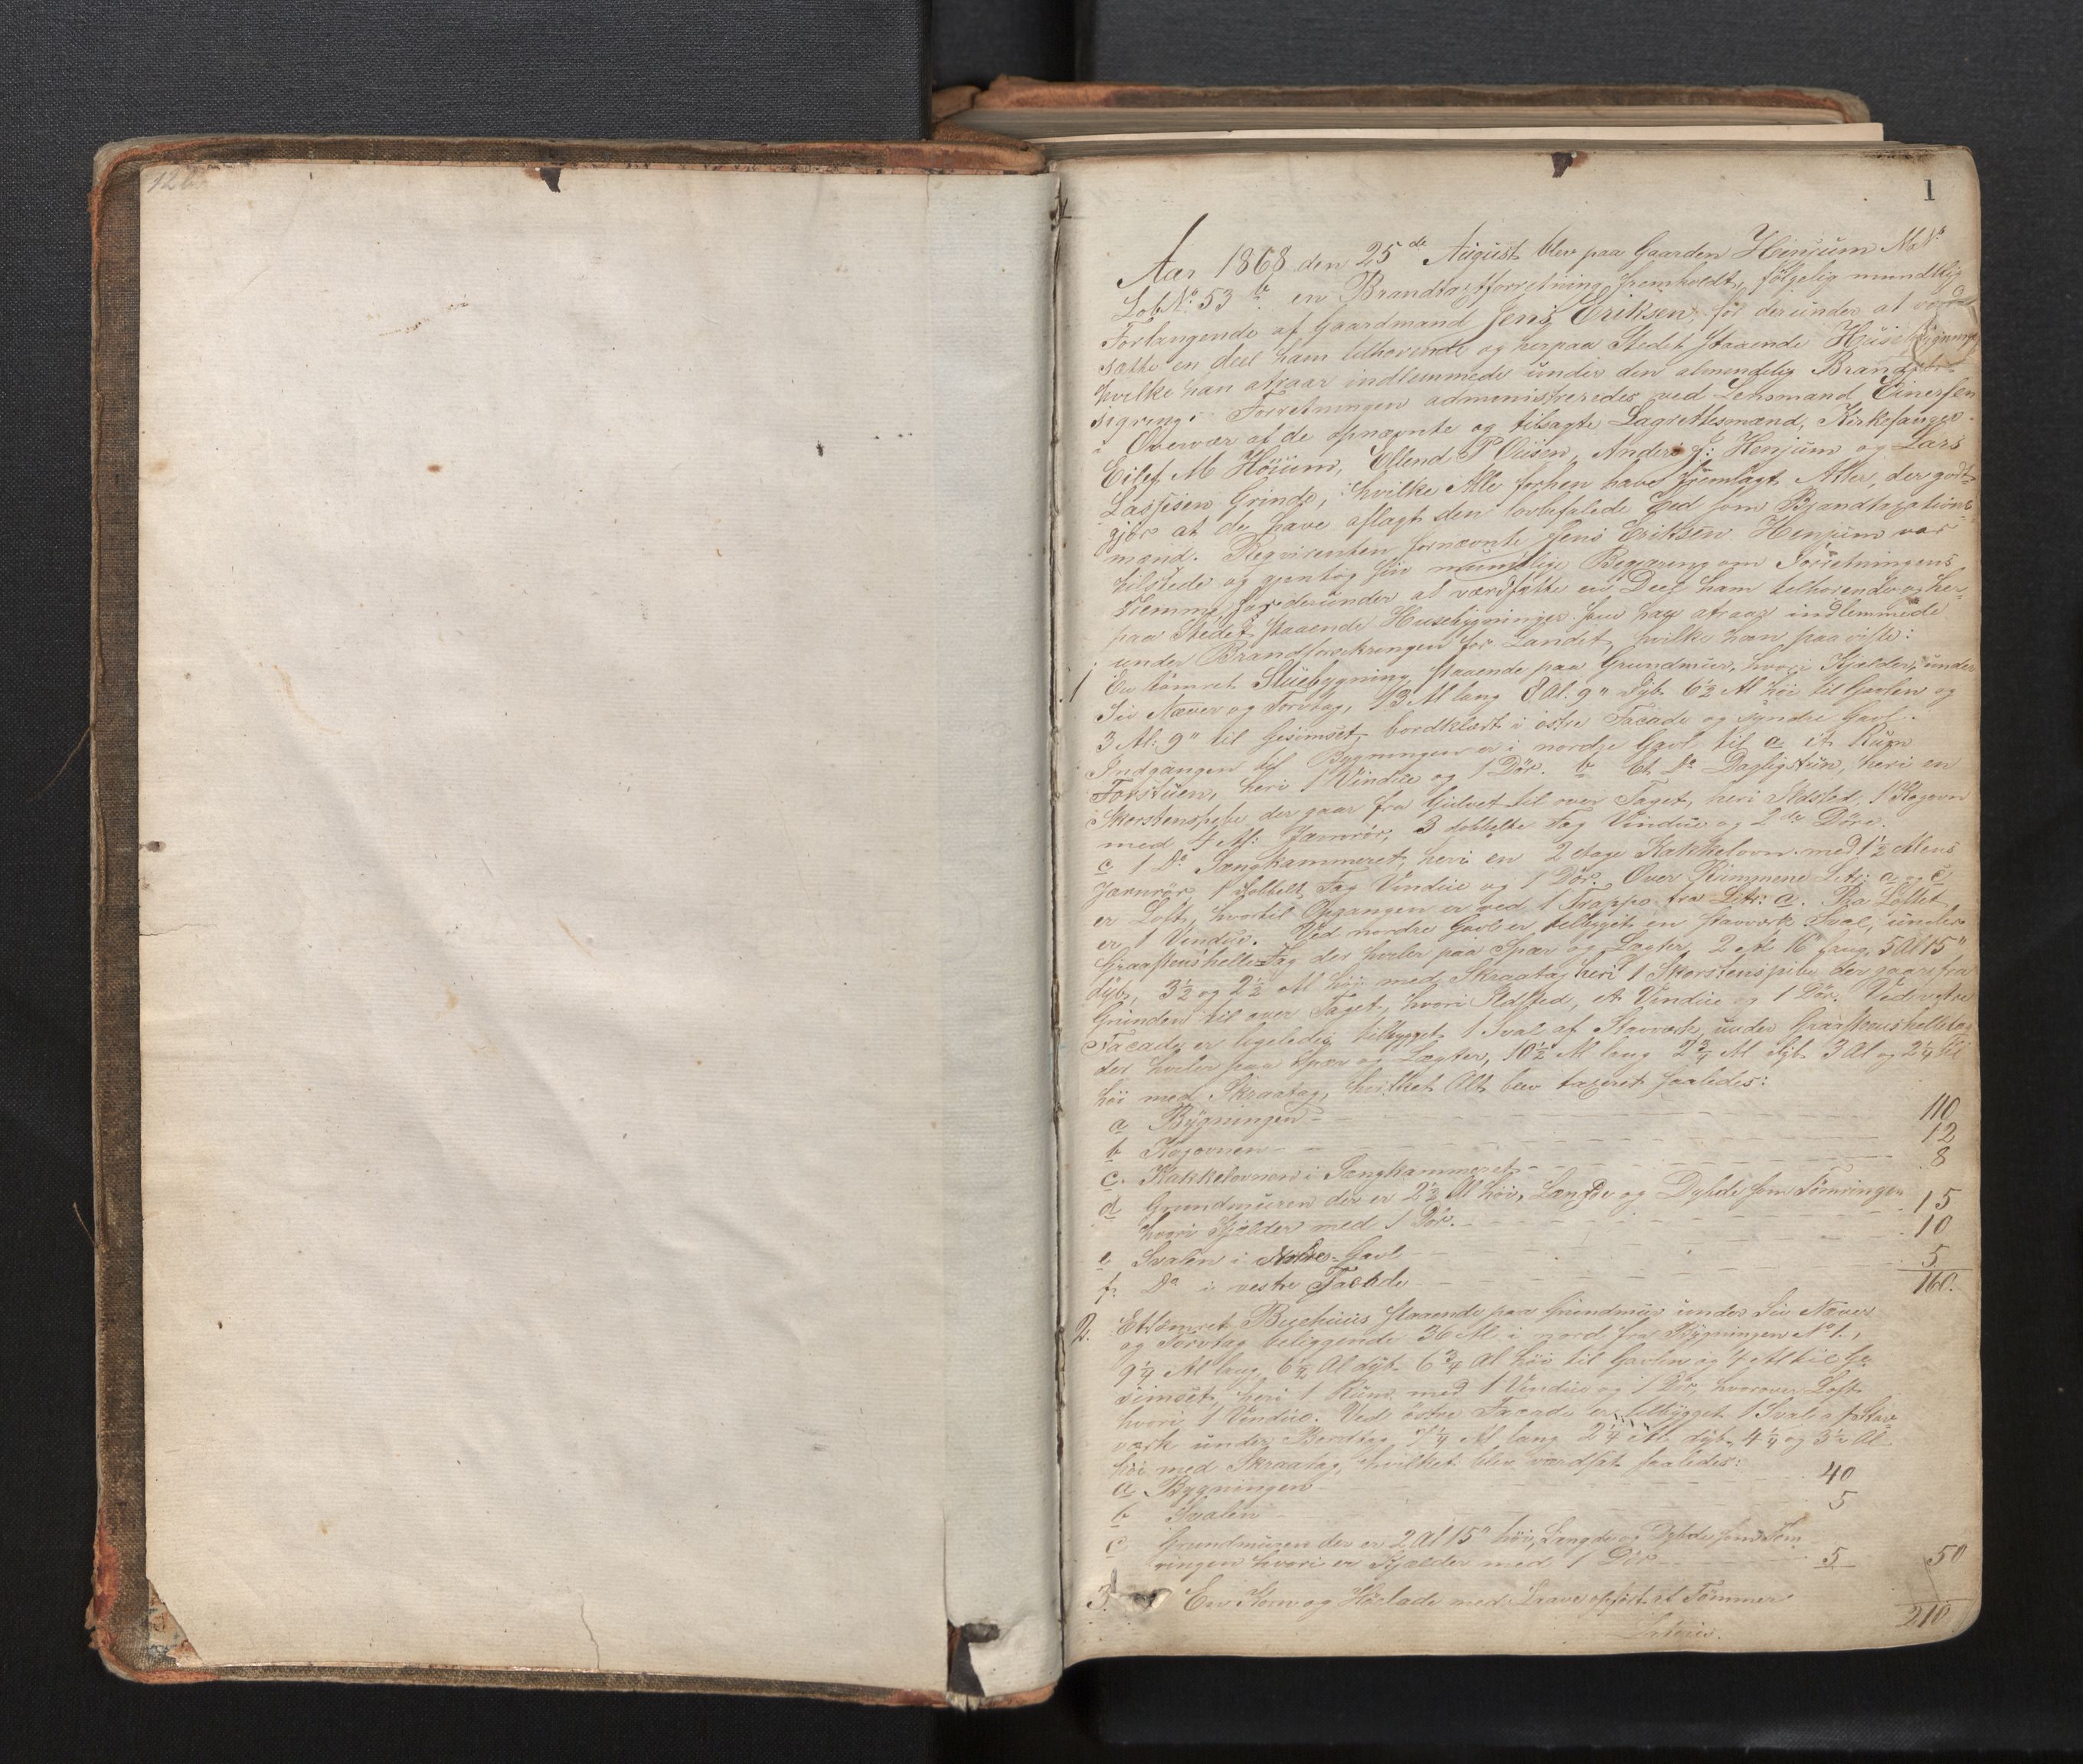 126
1
Aar 1868 den 25de August blev paa Gaarden Henjum M.No
LobNo. 53 b en Brandtaxtforretning fremholdt, følgelig mundtlig
Forlangende af Gaardmand Jens Eriksen, for derunder at værd
sætte en deel ham tilhorende og herpaa Stedet staaende Husebygninger
hvilke han atraar indlemmede under den almendelig Brandfor-
sigring. Forretningen administreredes ved Lensmand Einersen
i Overvær af de opnævnte og tilsagte Lagrettesmænd, Kirkesanger
Eilef M Höium, Ellend P Ölsen, Anders J: Henjum og Lars
Lassesen Grinde, hvilke Alle forhen have fremlagt Atter, der godt-
gjør at de have aflagt den lovbefalede Eed som Brandtaxations-
mænd. Reqvirenten fornævnte Jens Eriksen Henjum var
tilstede og gjentog sin mundtlige Begjæring om Forretningens
Fremme, for derunder at værdsætte en Deel ham tilhorende og her-
paa Stedet staaende Husebygninger som han atraar indlemmede
under Brandforsikringen for Landet, hvilke han paaviste:
1 En tömret Stüebygning staaende paa Grundmur, hvori Kjelder, under
Siv Næver og Torvtag, 13 Al lang 8 Al. 9" dyb 6½ Al höi til Gavlen og
3 Al: 9" til Gesimset, bordklædt i östre Facade og syndre Gavl.
Indgangen til Bygningen er i nordre Gavl til a et Rum
Forstüen, heri 1 Vindue og 1 Dör. b Et Do Dagligstün, heri en
Skorstenspibe der gaar fra Gulvet til over Taget, heri Ildsted, 1 Kogovn
med 4 Al: Jærnrör, 3 dobbelte Fag Vindue og 2de Döre.
c 1 Do Sængkammeret, heri en 2 etage Kakkelovn med 1½ Alens
Jærnrör 1 dobbelt Fag Vindue og 1 Dör. Over Rummene Litr: a og c
er Loft, hvortil Opgangen er ved 1 Trappe fra Litr: a. Paa Loftet
er 1 Vindue. Ved nordre Gavl er tilbygget en Stavværk Sval, under
Graastenshelle Tag der hviler paa Spær og Lægter, 2 Al 16" lang, 5 Al 15"
dyb, 3½ og 2½ Al höi med Skraatag heri 1 Skorstenspibe der gaar fra
Grunden til over Taget, hvori Ildsted, et Vindue og 1 Dör. Ved vestre
Facade er ligeledes tilbygget 1 Sval af Stavværk, under Graastenshelletag
der hviler paa Spær og Lægter, 10½ Al lang 2¾ Al dyb 3 Al og 2¼ Al
höi med Skraatag, hvilket Alt blev taxeret saaledes:
a Bygningen - - 110
b Kogovnen - - 12
c. Kakkelovnen i Sængkammeret - - 8
d Grundmuren der er 2½ Al höi, Længde og Dybde som Tömringen
hvori Kjelder med 1 Dör. - - 15
e Svalen i Nordre Gavl - - 10
f. Do i vestre Facade - - 5
160.
2. Et tömret Buehuus staaende paa Grundmur under Siv Næver
og Torvtag beliggende 36 Al i nord fra Bygningen No 1.,
9¼ Al lang, 6½ Al dyb 6¾ Al höi til Gavlen og 4 Al til Ge-
simset, heri 1 Rum med 1 Vindue og 1 Dör, hvorover Loft
hvori 1 Vindue. Ved östre Facade er tilbygget 1 Sval af Stav
værk under Bordtag, 9¼ Al lang 2¼ Al dyb, 4¼ og 3½ Al
höi med Skraatag, hvilket blev værdsat saaledes:
a Bygningen - 40
b Svalen - 5
c Grundmuren der er 2 Al 15" höi, Længde og Dybde som Töm-
ringen hvori er Kjælder med 1 Dör - 5 50
3. En Korn og Höelade med Laave opført af Tömmer
Lateris. 210